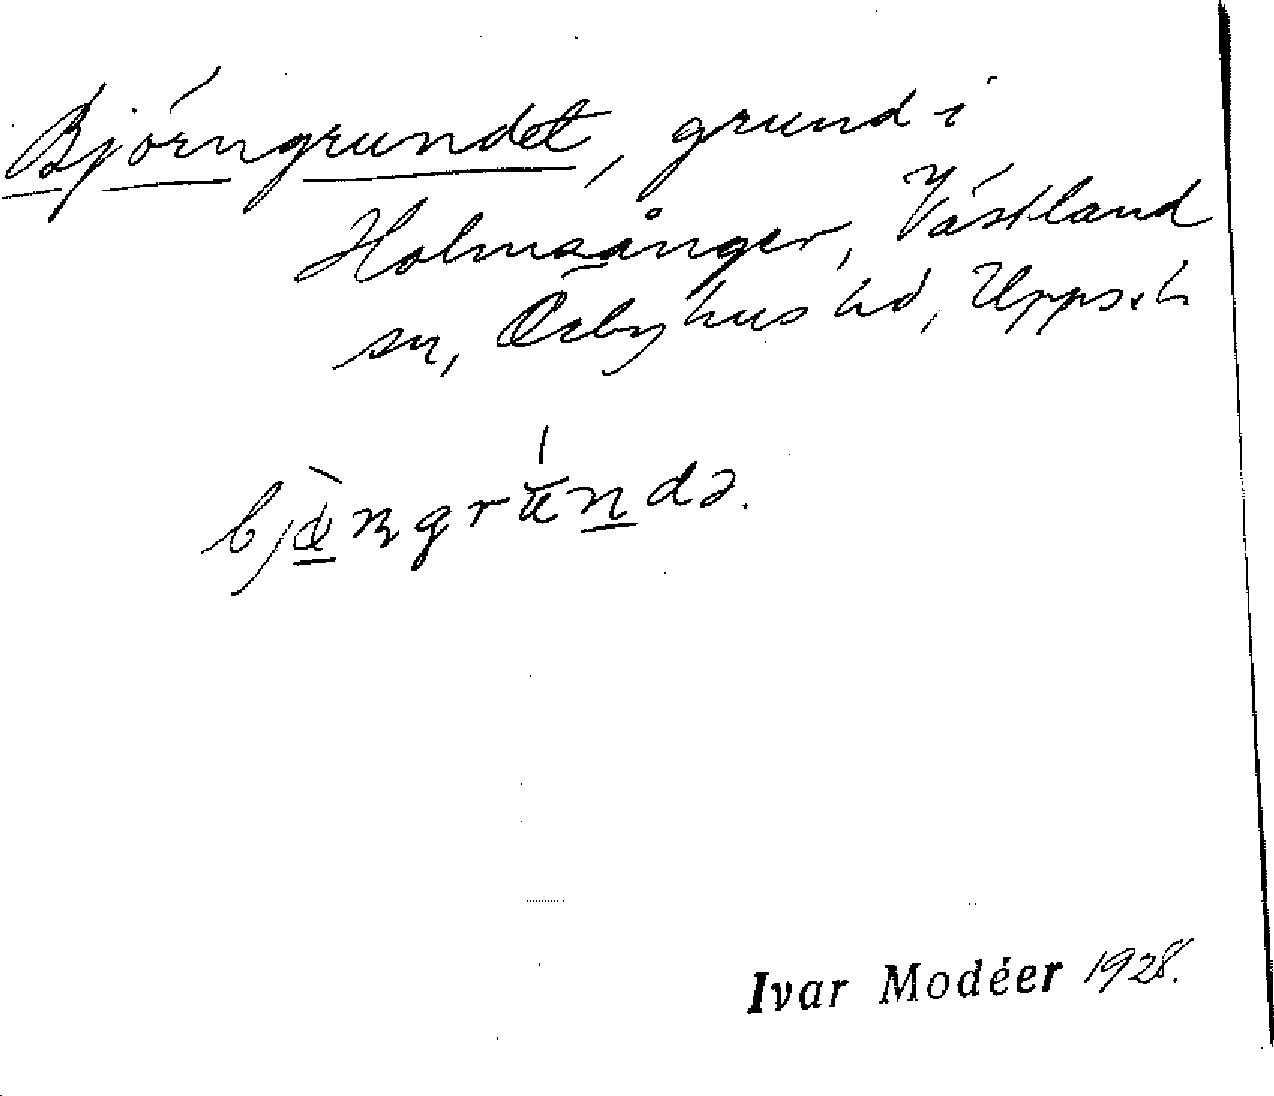 Björngrundet, grund i
Holmsånger, Västland
sn, Örbyhus hd, Upps. l.
bjœ̀ngrúndə.
Ivar Modéer 1928.